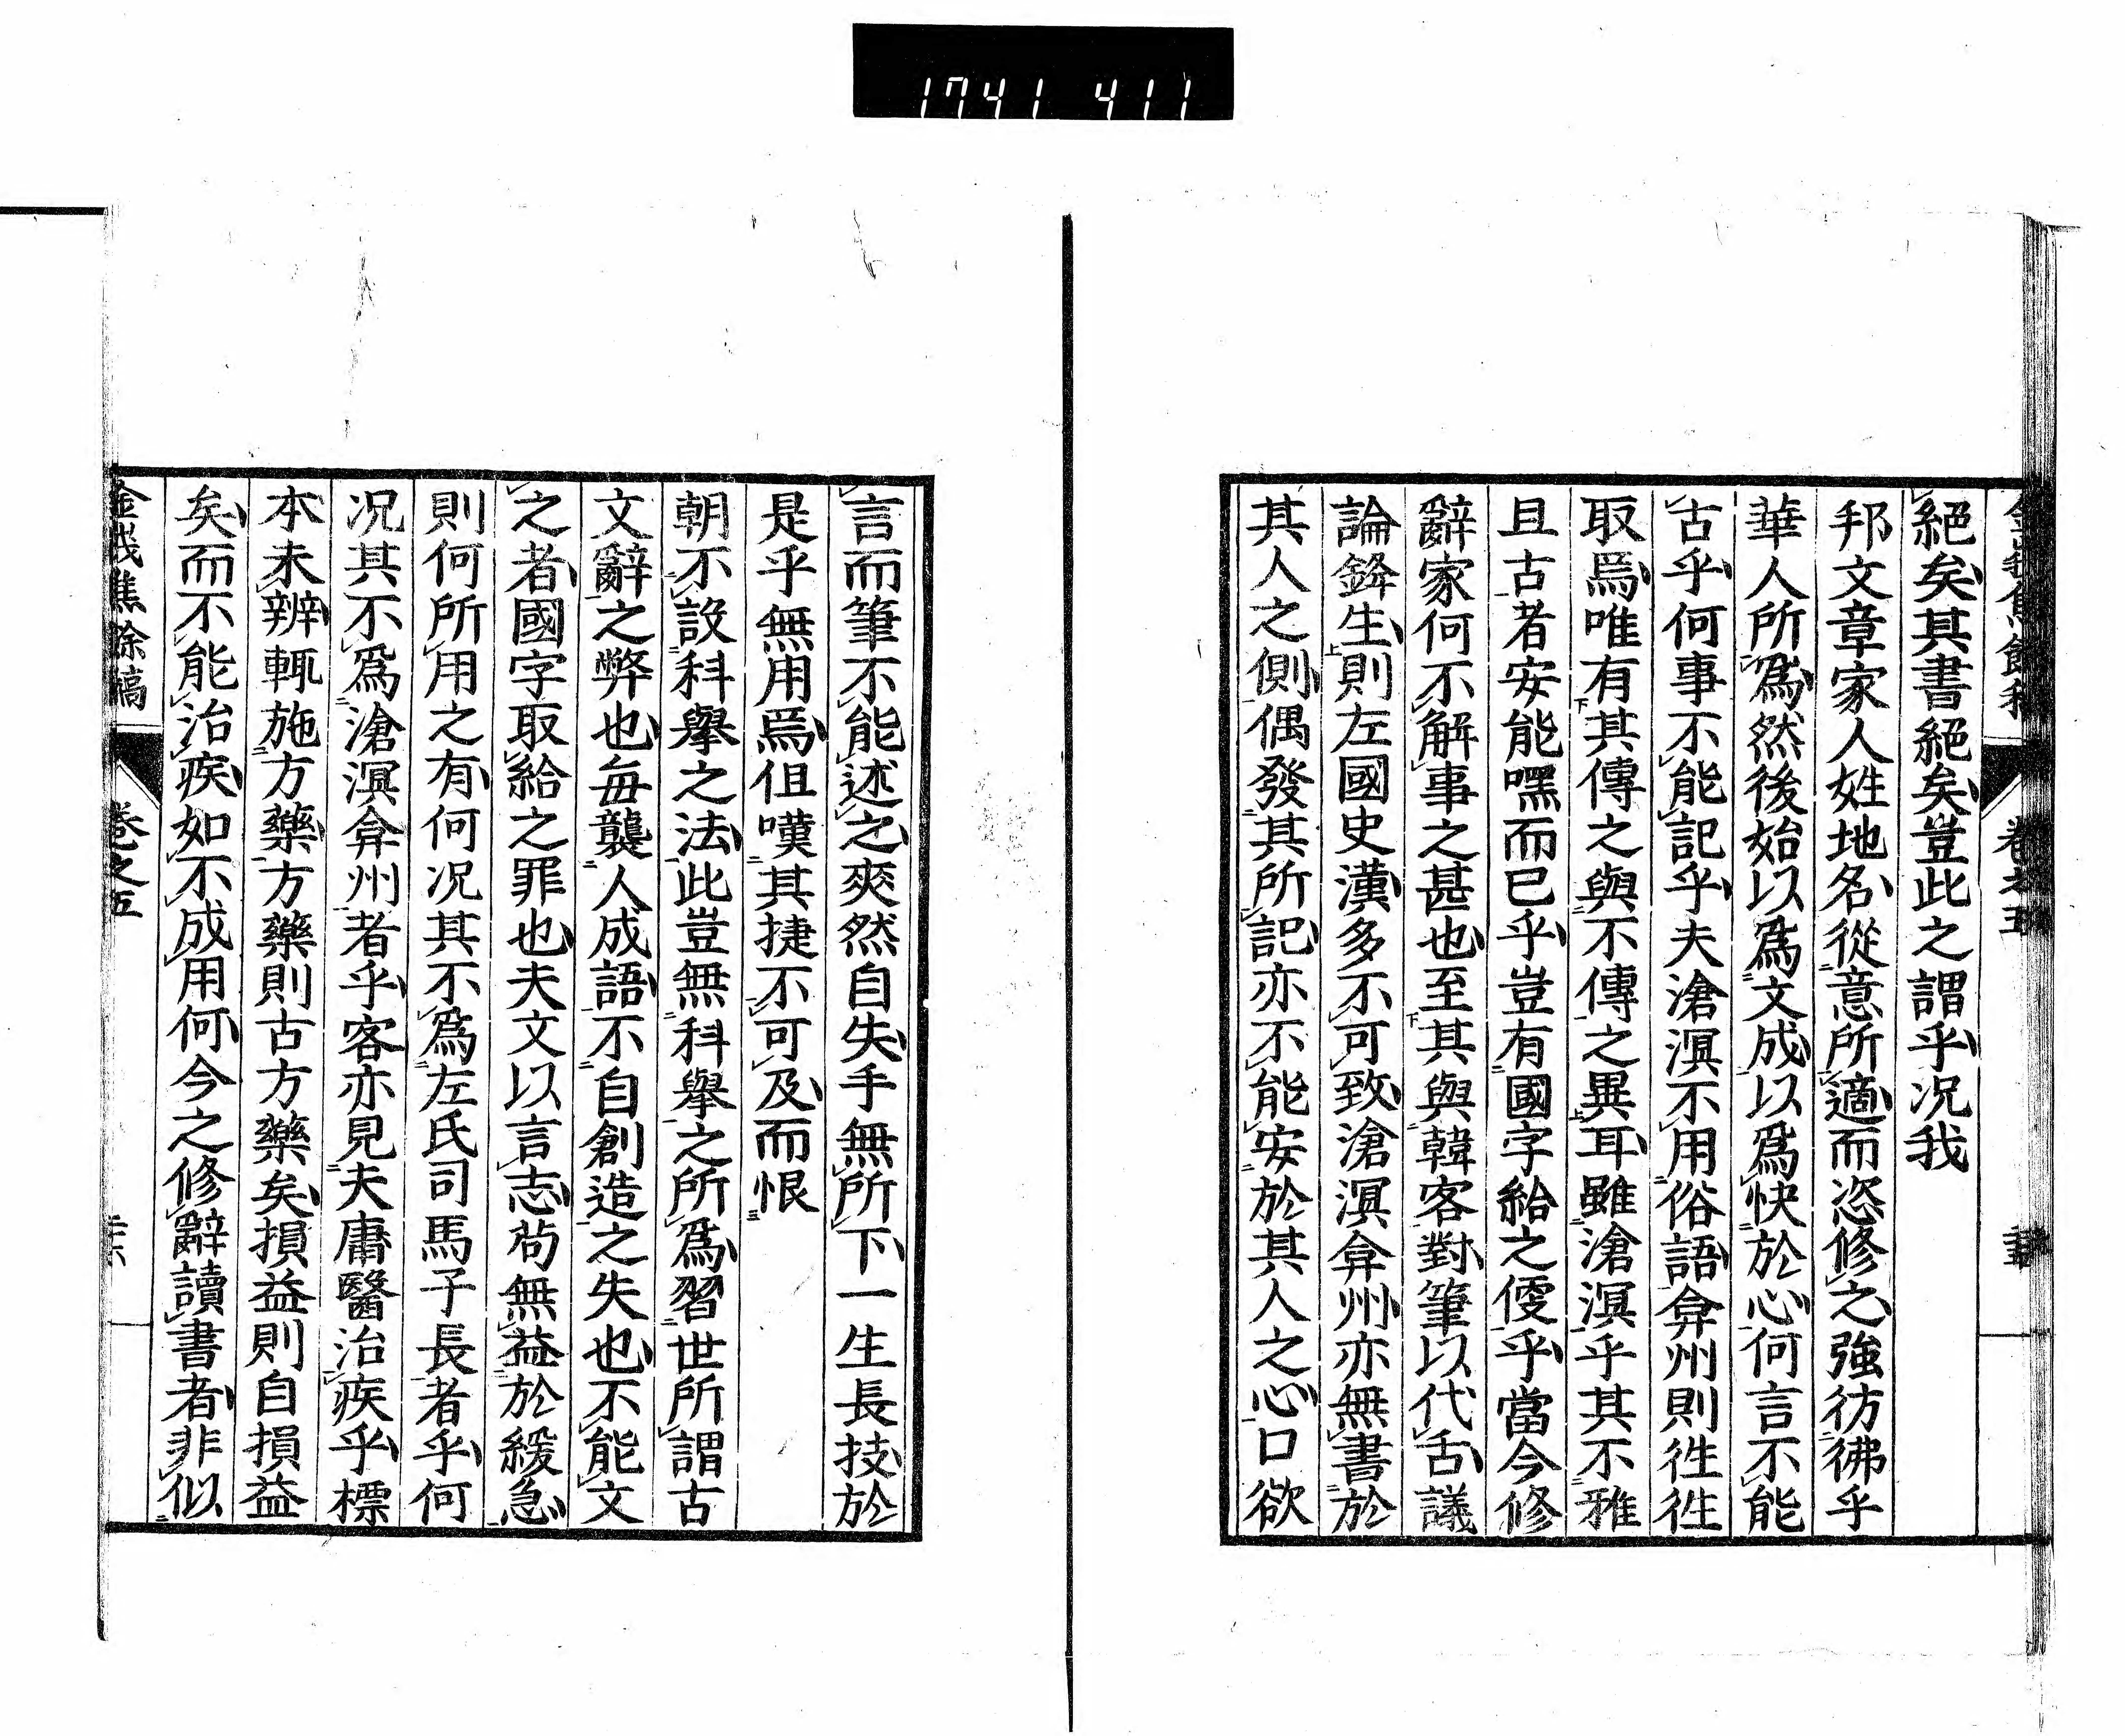 1741 411
絕矣其書絕矣豈此之謂乎况我
邦文章家人姓地名從意所適而恣修之強彷彿乎
華人所爲然後始以爲文成以爲快於心何言不能
古乎何事不能記乎夫滄溟不用俗語弇州則徃徃
取焉唯有其傳之與不傳之異耳雖滄溟乎其不雅
且古者安能嘿而已乎豈有國字給之便乎當今修
辭家何不解事之甚也至其與韓客對筆以代舌議
論鋒生則左國史漢多不可致滄溟弇州亦無書於
其人之側偶發其所記亦不能安於其人之心口欲
言而筆不能述之爽然自失手無所下一生長技於
是乎無用焉但嘆其捷不可及而恨
朝不設科擧之法此豈無科擧之所爲習世所謂古
文辭之弊也每襲人成語不自創造之失也不能文
之者國字取給之罪也夫文以言志苟無益於緩急
則何所用之有何况其不爲左氏司馬子長者乎何
况其不爲滄溟弇州者乎客亦見夫庸醫治疾乎標
本未辨輒施方藥方藥則古方藥矣損益則自損益
矣而不能治疾如不成用何今之修辭讀書者非似
金峩焦餘稿
卷之五